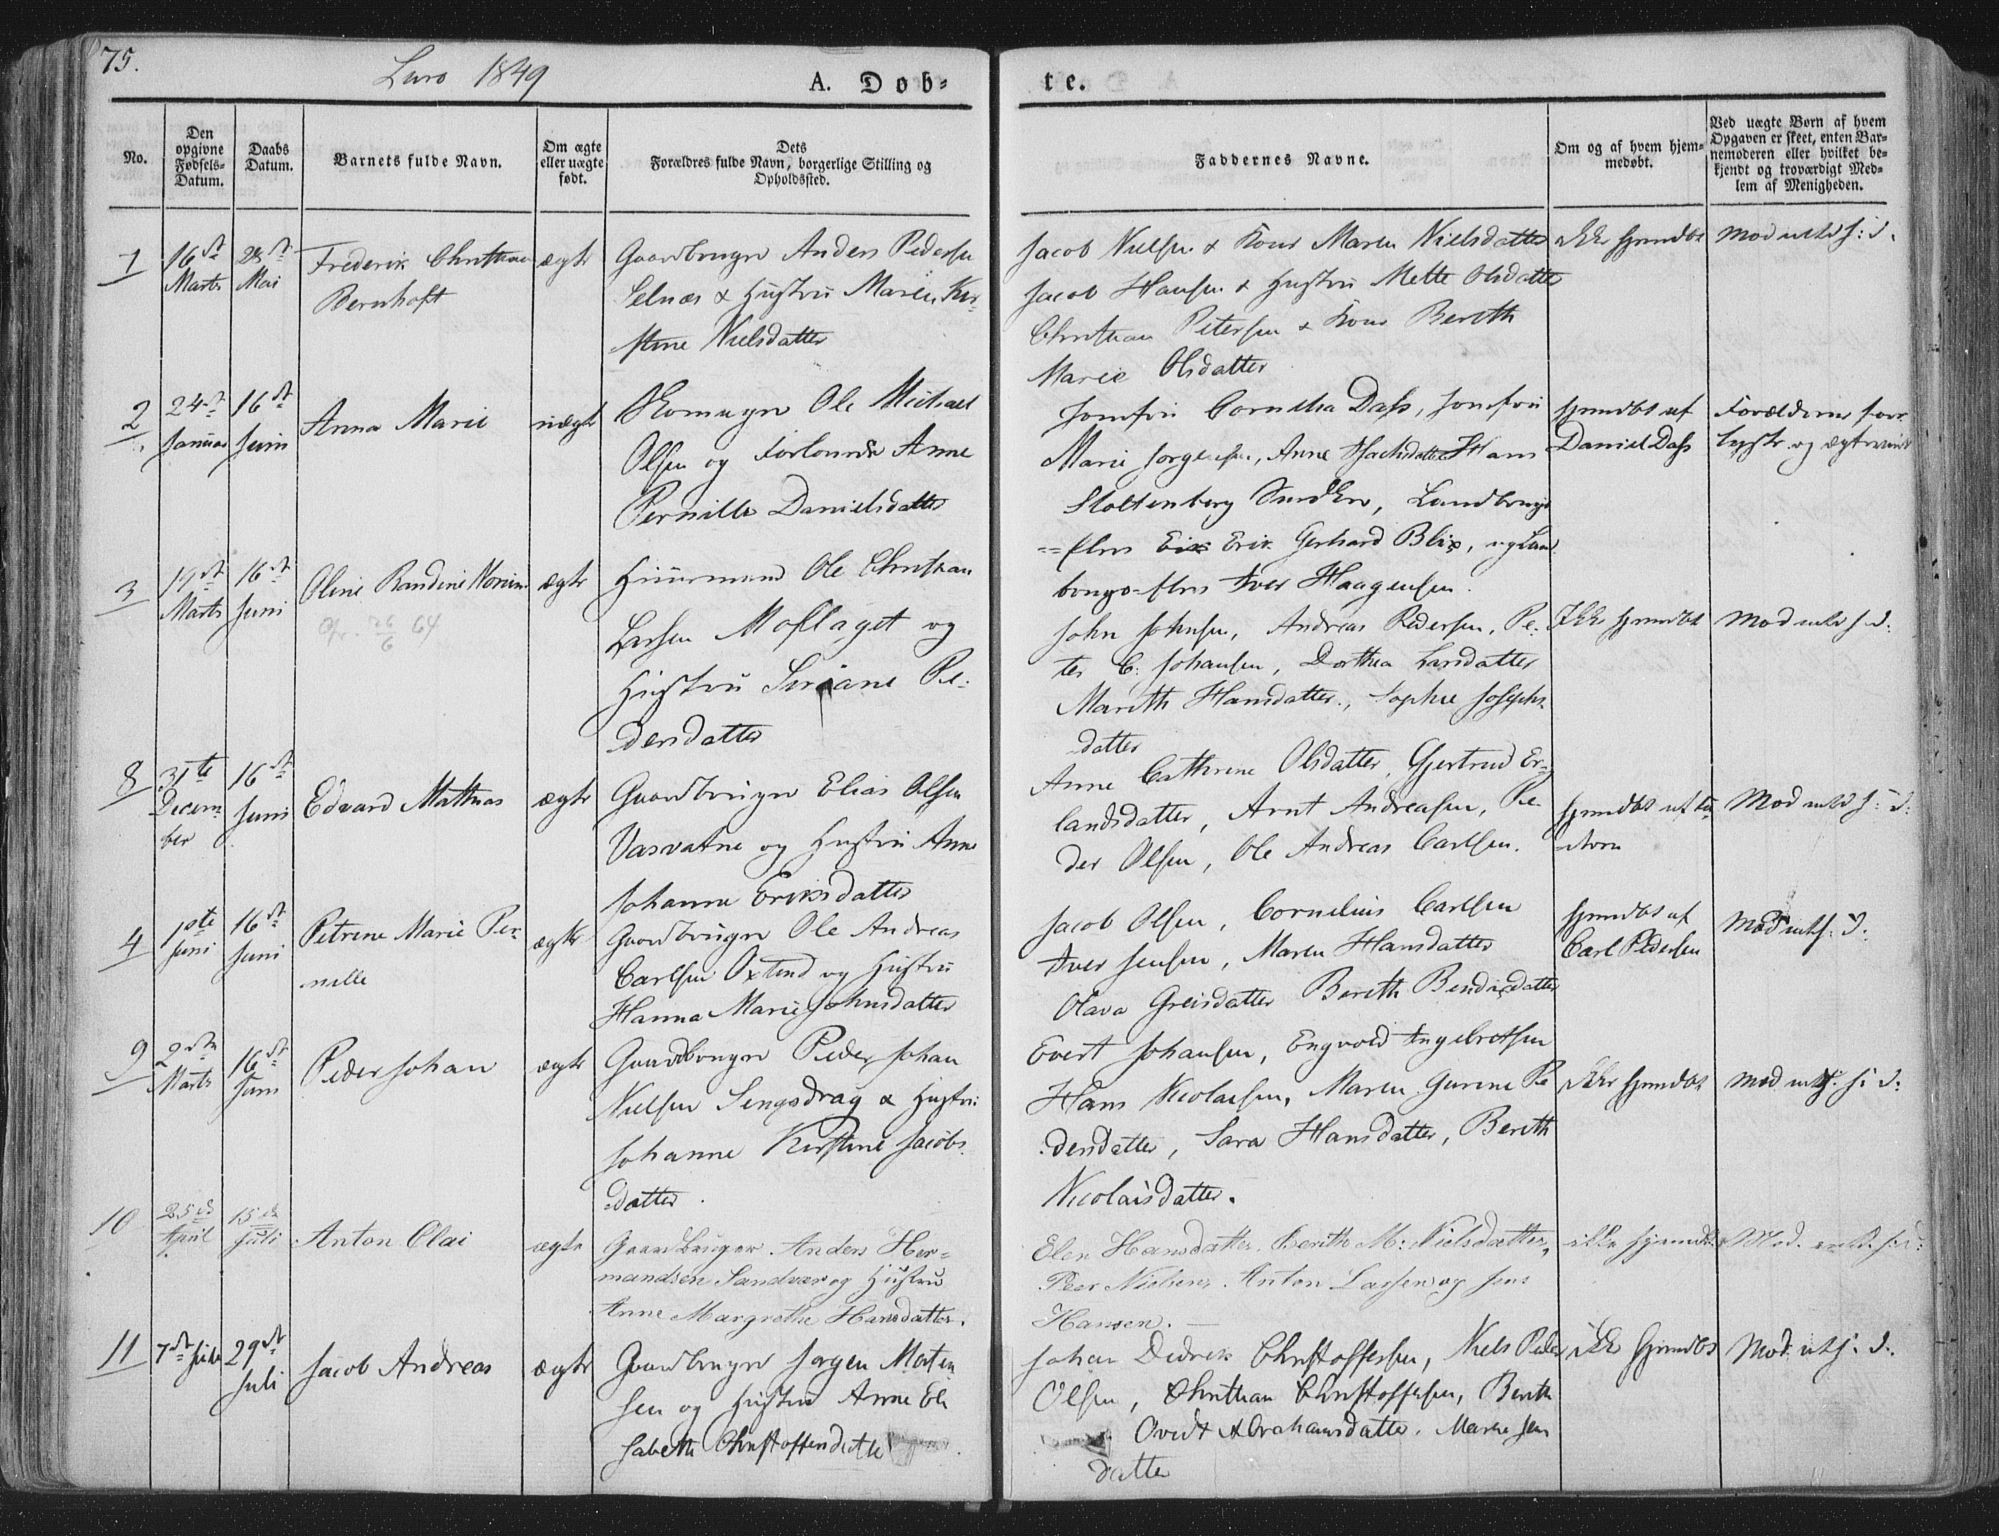 75.
Luro 1849
A. Døb-
te.
No.
Den opgivne Fødsels-Datum.
Daabs Datum.
Barnets fulde Navn.
Om ægte eller uægte født.
Dets Forældres fulde Navn, borgerlige Stilling og Opholdssted.
Faddernes Navne.
Om og af hvem hjem-medøbt.
Ved uægte Børn af hvem Opgaven er skeet, enten Bar-nemoderen eller hvilket be-kjendt og troværdigt Med-lem af Menigheden.
1
16de Marts
28de Mai
Frederik Christian
Bernhoft
ægte
Gaardbruger Anders Pedersen
Selnæs & Hustru Maren Kir-
stine Nielsdatter
Jacob Nielsen & Kone Maren Nielsdatter
Jacob Hansen & Hustru Mette Olsdatter
Christian Petersen & Kone Bereth
Marie Olsdatter
ikke hjemdbt
2
24de Januar
16de Juni
Anna Marie
uægte
Ole Michael
Olsen og Forlovede Anne
Pernille Danielsdatter
Jomfru Cornelia Dass, Jomfru
Marie Jørgensen, Anne Isachsdatter Hans
Stoltenberg
Erik Gerhard Blix,
Iver Haagensen.
hjemdbt af
Daniel Dass
Forældrene
3
19de Marts
16de Juni
Oline Randine
26/6 64
ægte
Huusmand Ole Christian
Larsen Moflaget og
Hustru Siriane Pe-
dersdatter
John Johnsen, Andreas Pedersen, Pe-
ter C. Johansen, Dorthea Larsdatter
Mareth Hansdatter, Sophie Josephs-
datter
Ikke hjemdbt
8
31te Decem-
ber
16de Juni
Edvard Mathias
ægte
Gaardbruger Elias Olsen
Vasvatne og Hustru Anne
Johanna Eriksdatter
Anne Cathrine Olsdatter, Gjertrud Er-
landsdatter, Arnt Andreasen, Pe-
der Olsen, Ole Andreas Carlsen.
hjemdbt af
4
1ste Juni
16de Juni
Petrine Marie Per-
nille
ægte
Gaardbruger Ole Andreas
Carlsen Oxtind og Hustru
Hanna Marie Johnsdatter
Jacob Olsen, Cornelius Carlsen
Iver Jensen, Maren Hansdatter
Olava Greisdatter Bereth Bendicsdatter
hjemdbt af
Carl Pedersen
9
2den Marts
16de Juni
Peder Johan
ægte
Gaardbruger Peder Johan
Nielsen Sengsdrag & Hustru
Johanne Kirstine Jacobs-
datter.
Evert Johansen, Engvold Ingebretsen
Hans Nicolaisen, Maren Gurine Pe
dersdatter, Sara Hansdatter, Bereth
Nicolaisdatter.
ikke hjemdbt
10
25de April
15de Juli
Anton Olai
ægte
Gaardbruger Anders Her-
mandsen Sandvær og Hustru
Anne Margrethe Hansdatter.
Elen Hansdatter, Berith M: Nielsdatter,
Peer Nielsen, Anton Larsen og Jens
Hansen.
ikke hjemdbt
11
7de Juli
29de Juli
Jacob Andreas
ægte
Gaardbruger Jørgen Morten
sen og Hustru Anne Eli
sabeth Christoffersdatter
Johan Didrik Christoffersen, Niels Peder
Olsen, Christian Christoffersen, Bereth
Abrahamsdatter, Maren Jens
datter
ikke hjemdbt